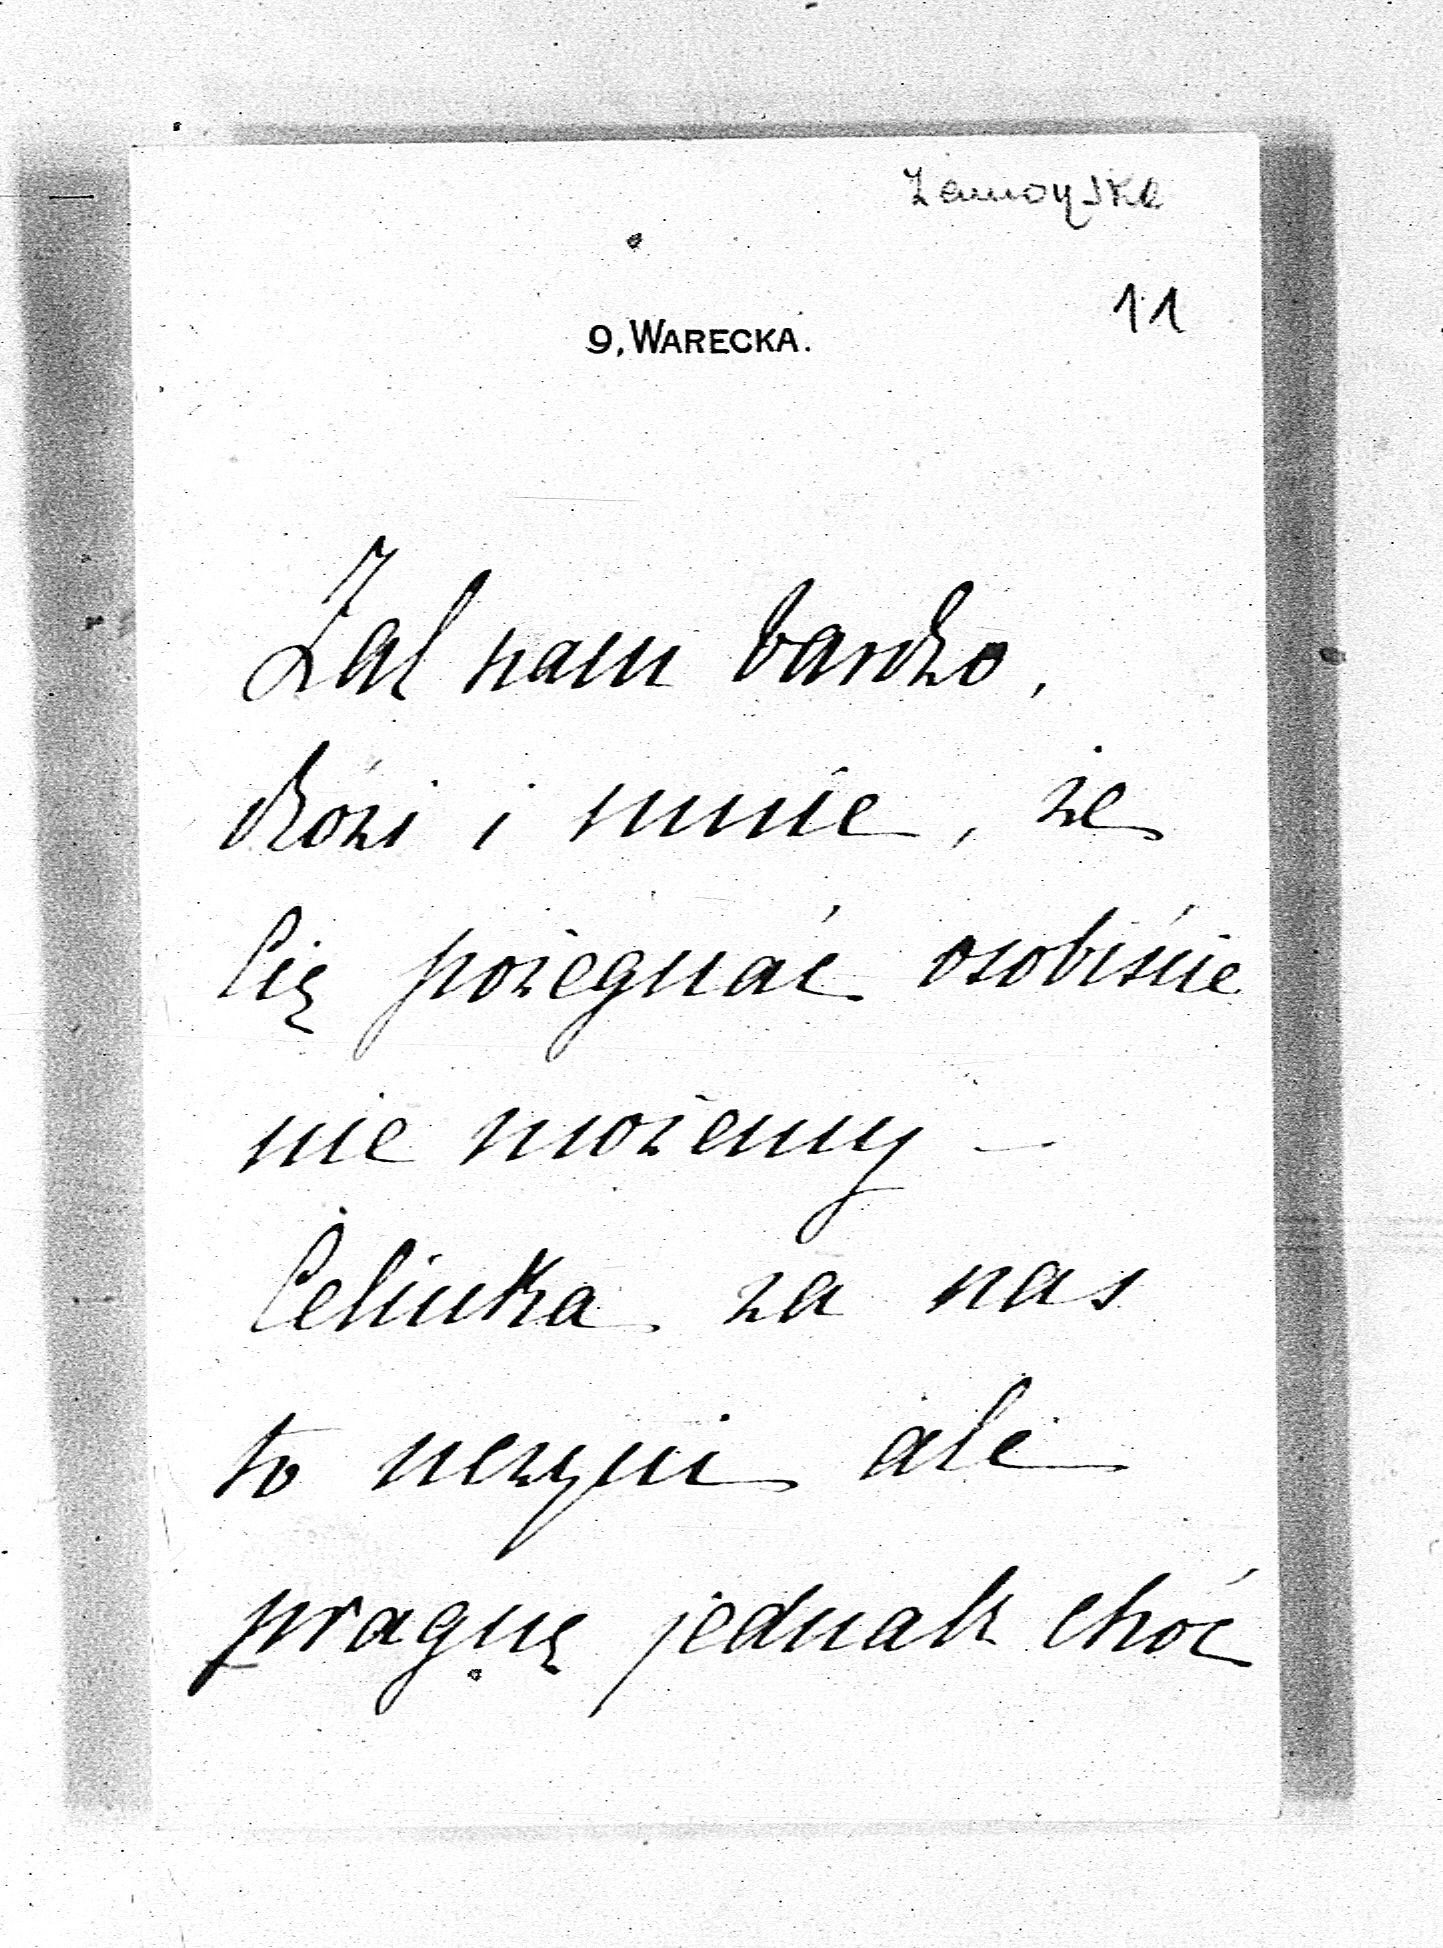 Zamoyska
11
9, WARECKA.
Żal nam bardzo,
Rózi i mnie, że
Cię pożegnać osobiście
nie możemy —
Celinka za nas
to uczyni ale
pragnę jednak choć